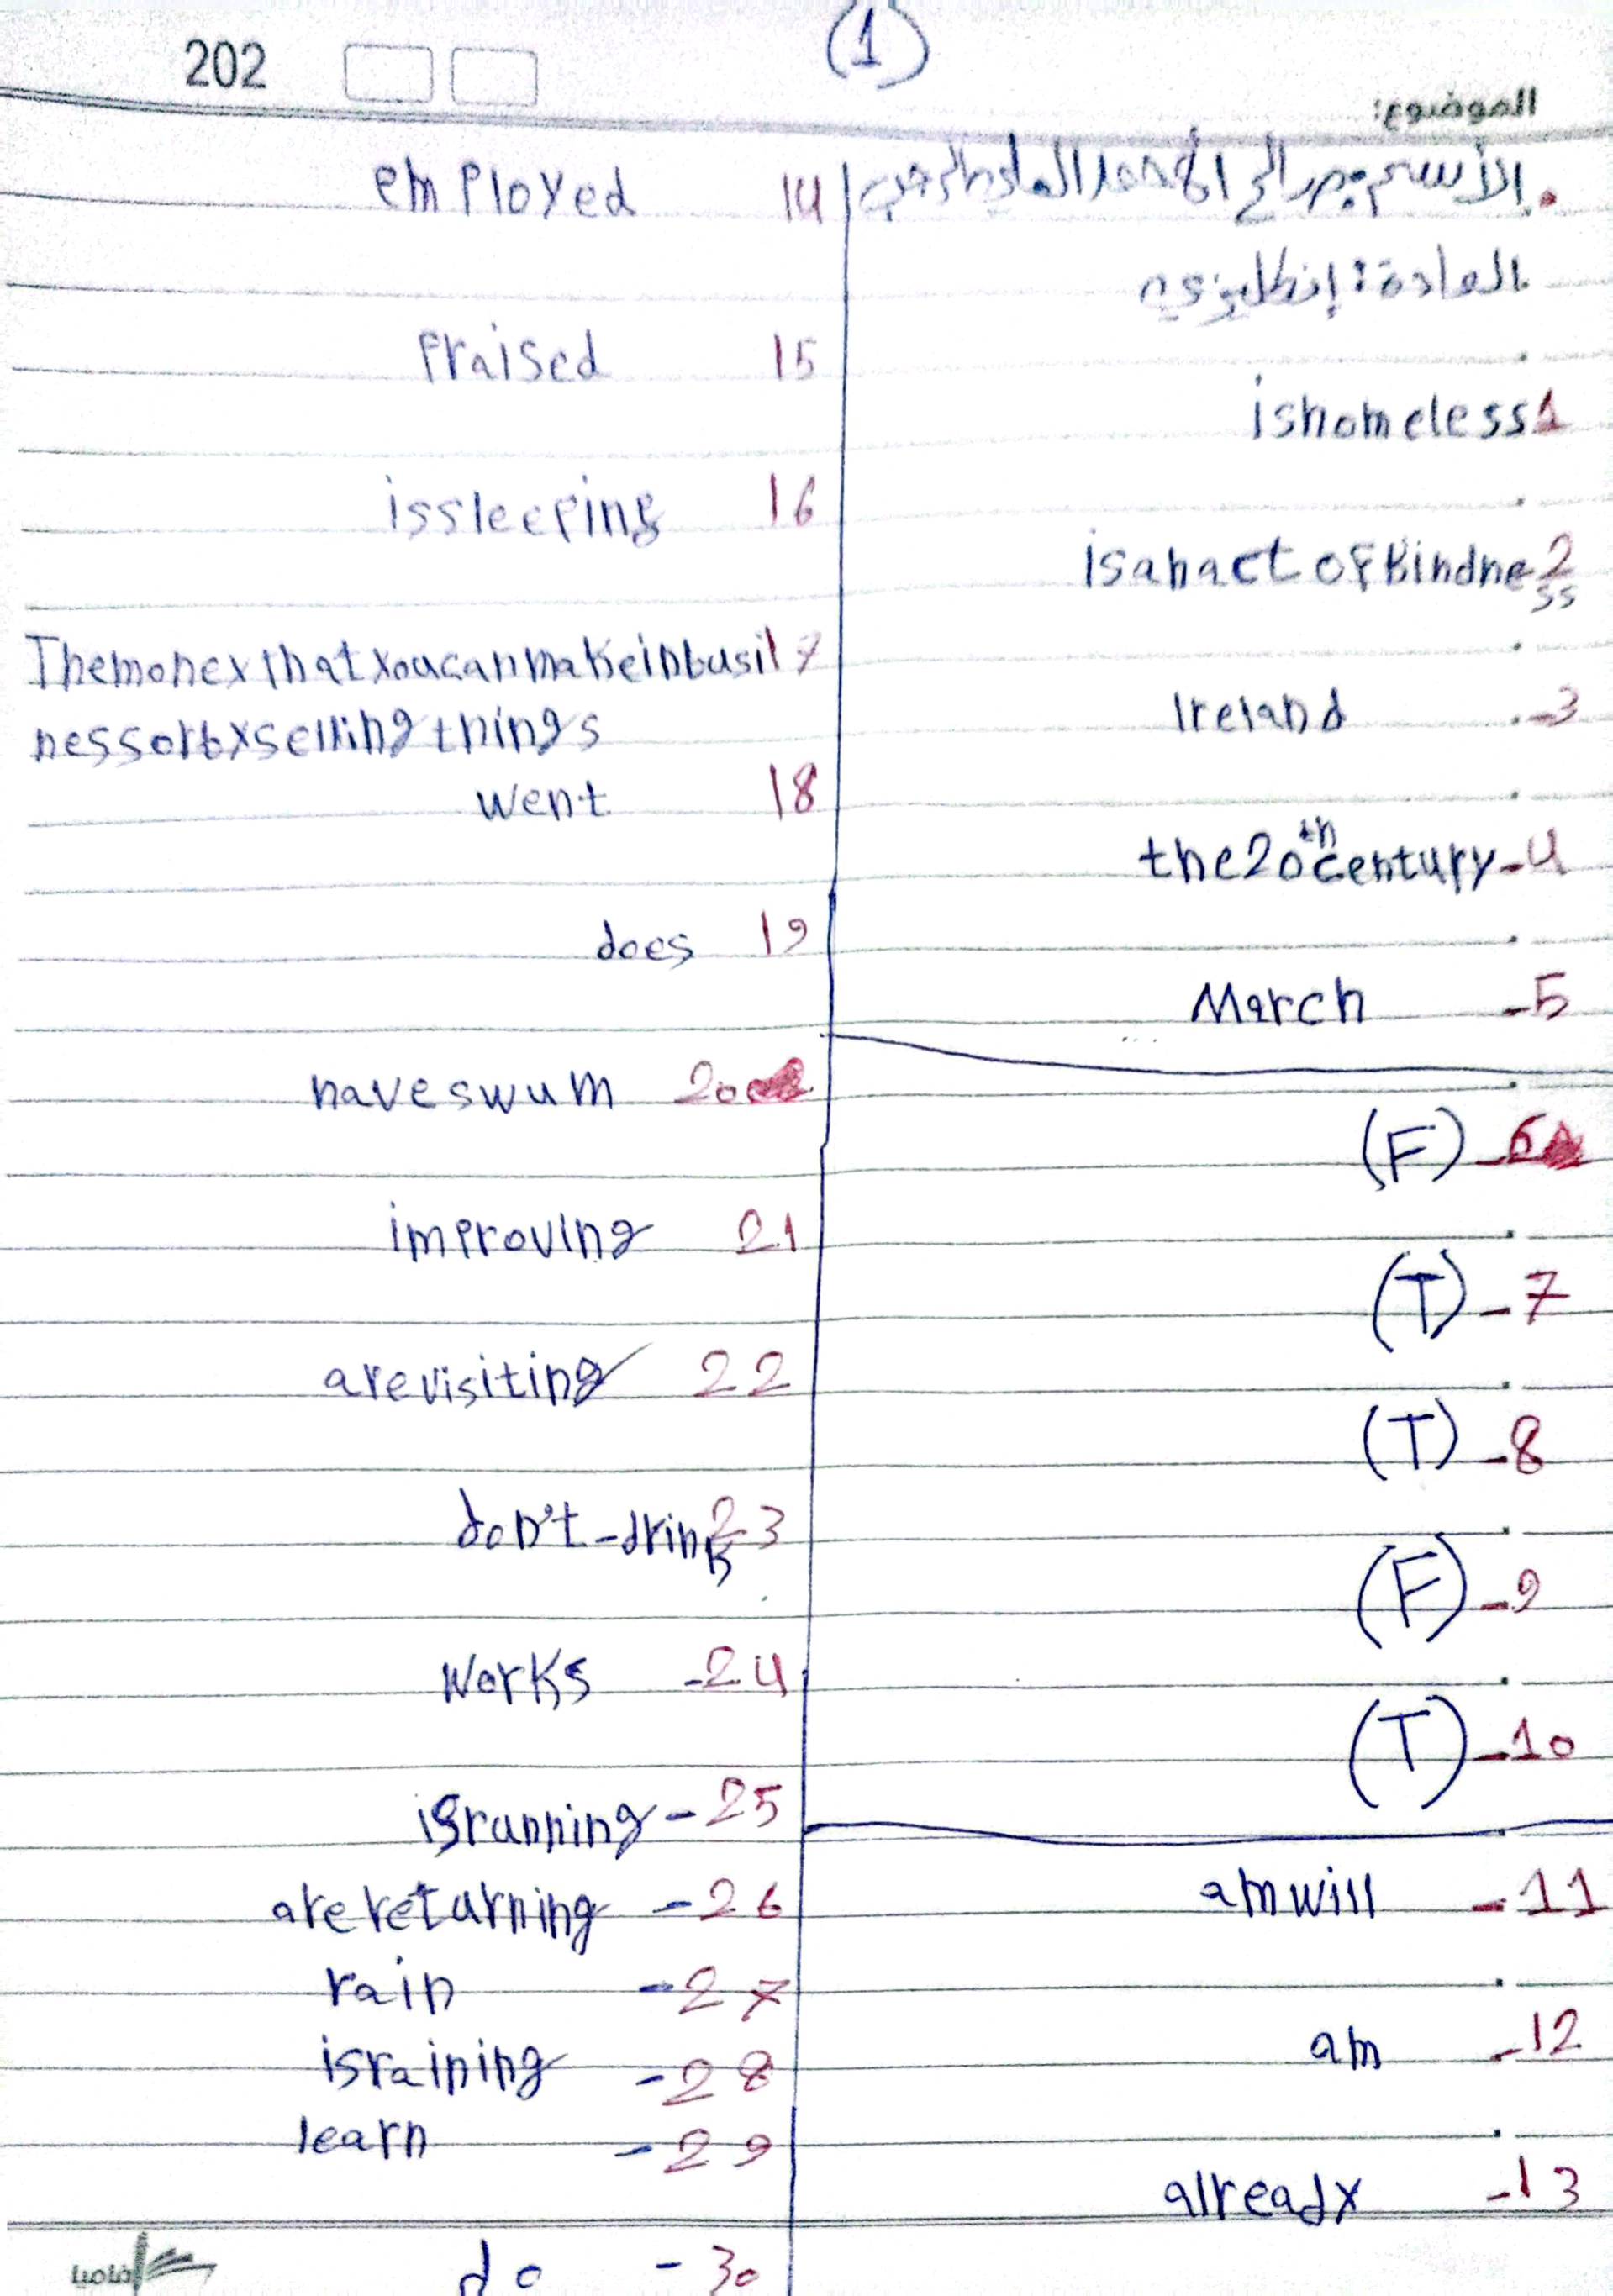 202
(1)
الموضوع:
المادة: إنظليزيه
ishomeless 1
isanact of kindne 2
ss
Ireland -3
the 20th century -4
March -5
(F) -6
(T) -7
(T) -8
(F) -9
(T) -10
am will -11
am -12
already -13
employed 14
Praised 15
issleeping 16
Themoneythatyoucanmakeinbusi 17
nessorbysellingthings
went 18
does 19
haveswum 20
improving 21
arevisiting 22
don't-drink 23
works -24
isrunning -25
arereturning -26
rain -27
israining -28
learn -29
do -30